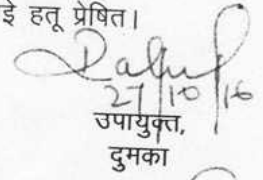 ई हतू प्रेषित।
27/10/16
उपायुक्त,
दुमका